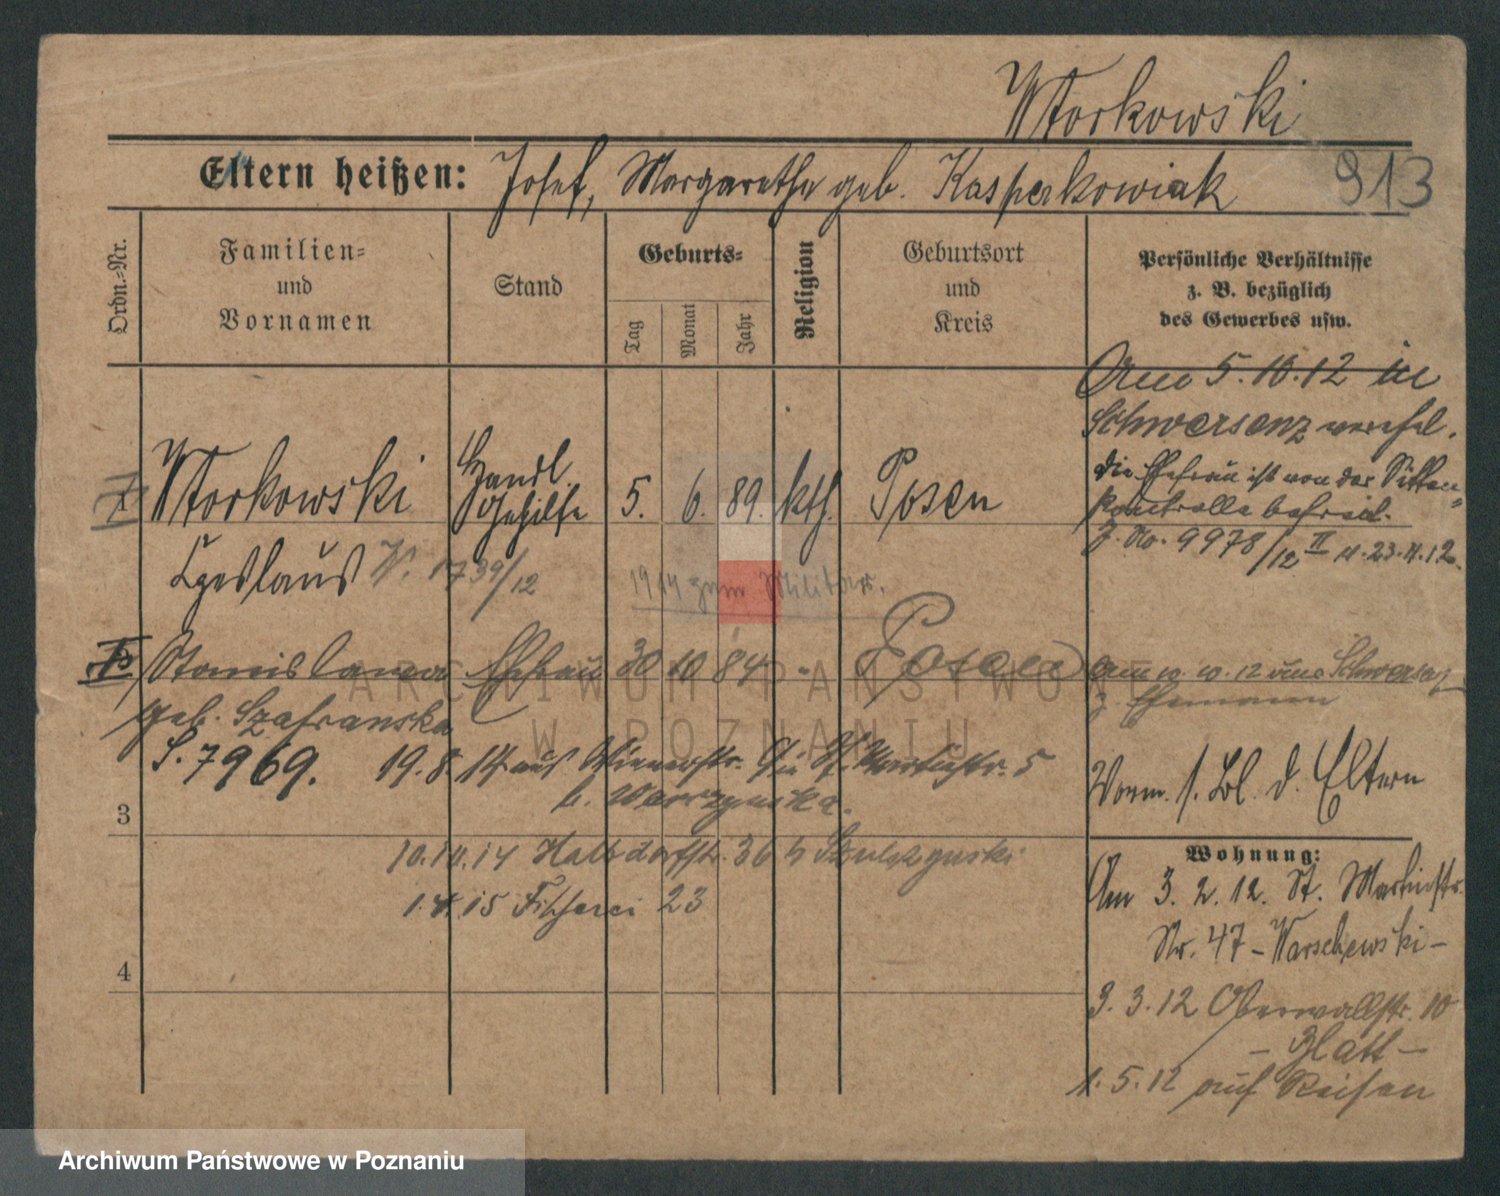 Wtorkowski
Eltern heißen: Josef, Margarethe geb. Kasperkowiak
913
Ordn.-Nr.
Familien-
und
Vornamen
Stand
Geburts-
Tag
Monat
Jahr
Religion
Geburtsort
und
Kreis
Persönliche Verhältnisse
z. B. bezüglich
des Gewerbes usw.
Am 5.10.12 in
Schwersenz verehel.
die Ehefrau ist von der Sitten-
kontrolle befreit.
J. No. 9978/12 II v. 23.11.12.
1 Wtorkowski Handl. Gehilfe 5. 6. 89. kth. Posen
Czeslaus V. 1739/12
1914 zum Militär.
Stanislawa Ehefrau 30 10 84 - Posen
geb. Szafranska
Am 10.10.12 von Schwersenz
z. Ehemann
S. 7969. 19.8.14 aus Wienerstr. St. Martinstr. 5
b. Wawrzyniak
Vorm. s. Bl. d. Eltern
3
10.10.14 Halbdorfstr. 36 b
1.4.15 Fischerei 23
4
Wohnung:
Am 3. 2. 12. St. Martinstr.
Nr. 47 - Warschewski -
3.3.12 Oberwallstr. 10
- Blatt -
1.5.12 auf Reisen
ARCHIWUM PAŃSTWOWE
W POZNANIU
Archiwum Państwowe w Poznaniu